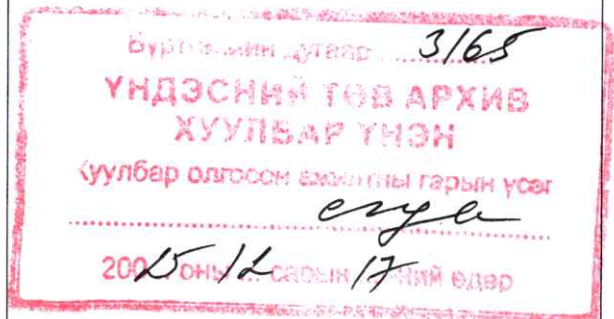 дугаар 3165
ҮНДЭСНИЙ ТӨВ АРХИВ
ХУУЛБАР ҮНЭН
Хуулбар олгосон ажилтны гарын үсэг
2025 оны 12 сарын 17 ний өдөр